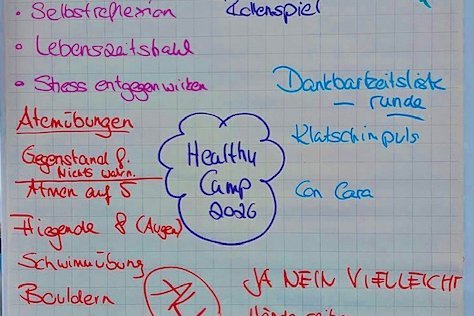 • Selbstreflexion
Rollenspiel
• Lebenszeitstrahl
• Stress entgegenwirken
Dankbarkeitsliste
– runde
Atemübungen
Klatschimpuls
Gegenstand f.
Nichts wahrn.
Atmen auf 5
Healthy
Camp
2026
Con Cara
Fliegende 8 (Augen)
Schwimmübung
Bouldern
JA NEIN VIELLEICHT